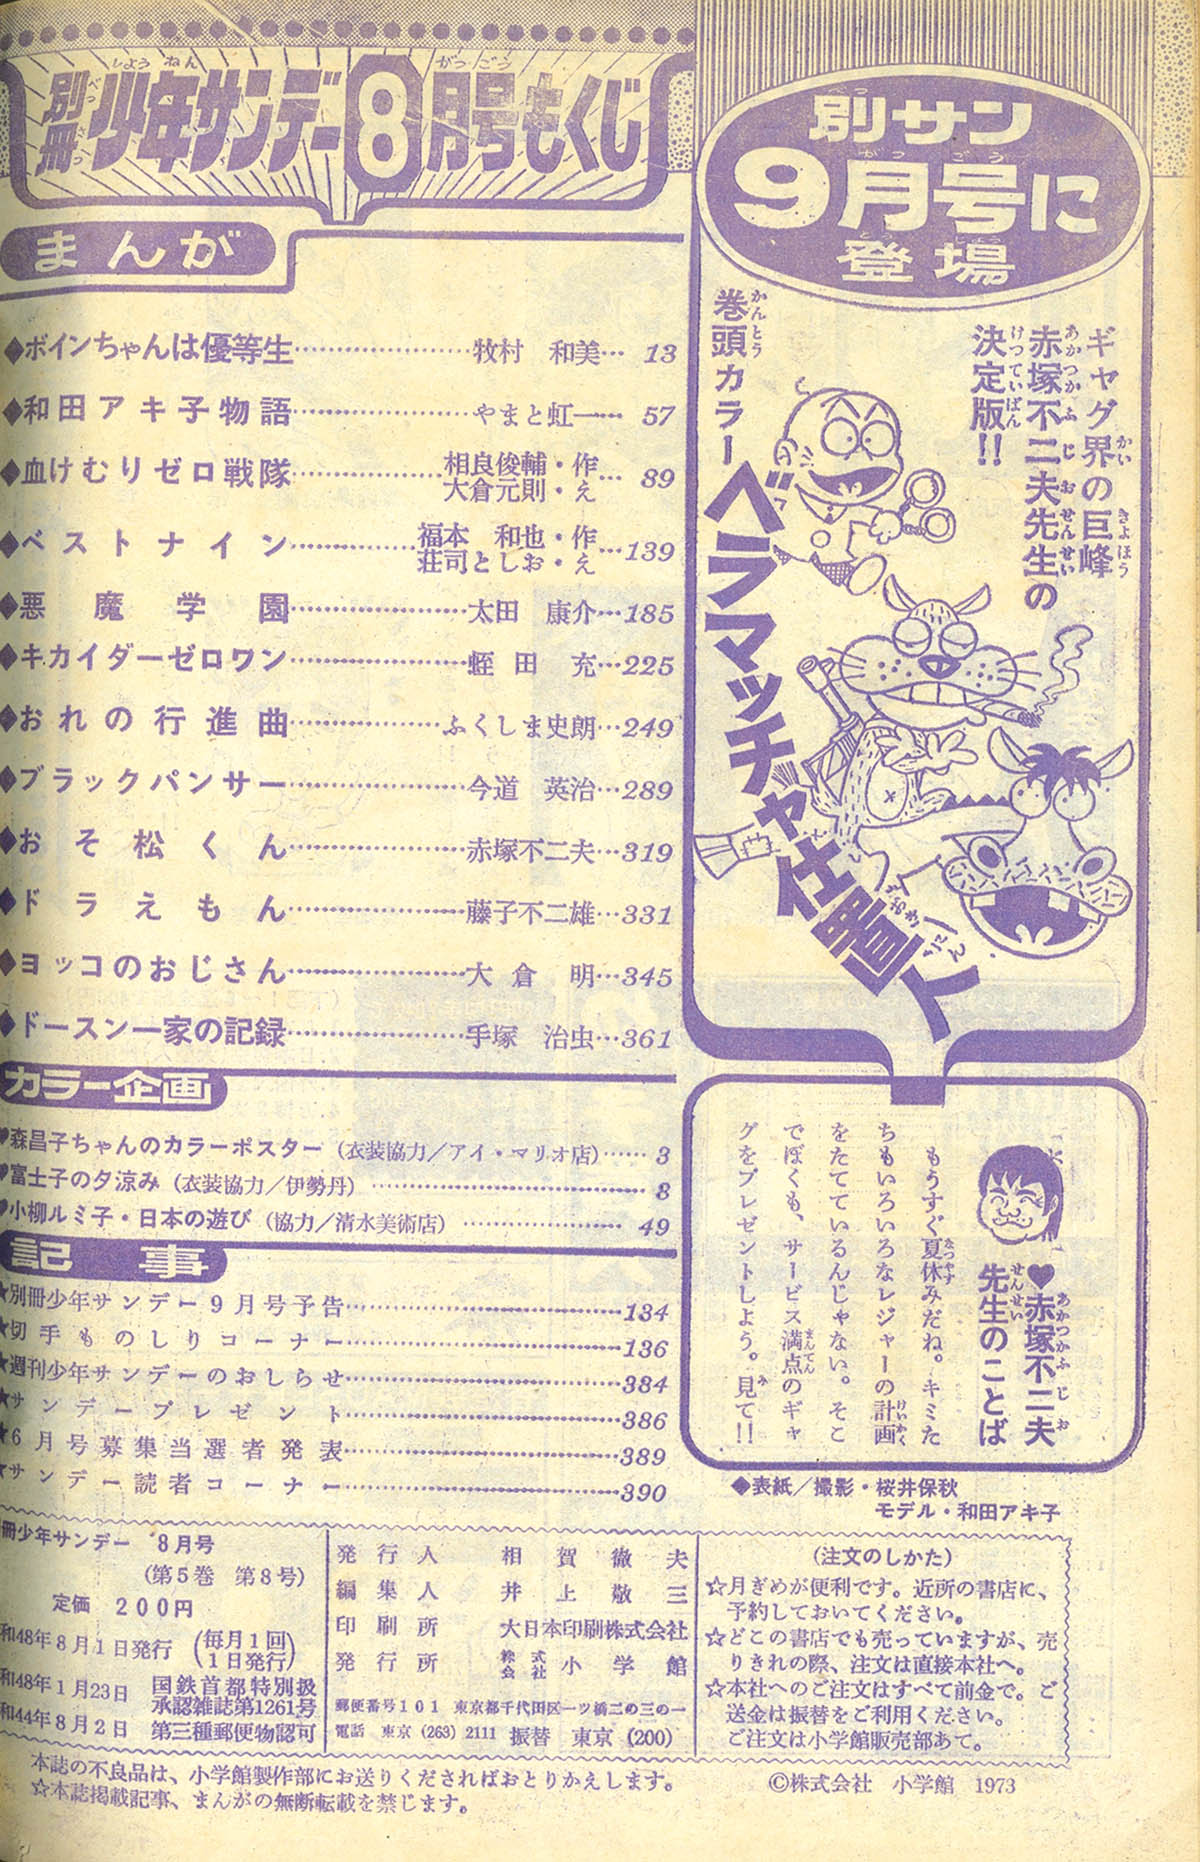 別冊少年サンデー8月号もくじ
まんが
◆ボインちゃんは優等生…牧村 和美…13
◆和田アキ子物語…やまと虹一…57
◆血けむりゼロ戦隊…相良俊輔・作 大倉元則・え…89
◆ベストナイン…福本 和也・作 荘司としお・え…139
◆悪魔学園…太田 康介…185
◆キカイダーゼロワン…蛭田 充…225
◆おれの行進曲…ふくしま史朗…249
◆ブラックパンサー…今道 英治…289
◆おそ松くん…赤塚不二夫…319
◆ドラえもん…藤子不二雄…331
◆ヨッコのおじさん…大倉 明…345
◆ドースン一家の記録…手塚 治虫…361
カラー企画
♥森昌子ちゃんのカラーポスター(衣装協力/アイ・マリオ店)…3
♥富士子の夕涼み(衣装協力/伊勢丹)…8
♥小柳ルミ子・日本の遊び(協力/清水美術店)…49
記事
★別冊少年サンデー9月号予告…134
★切手ものしりコーナー…136
★週刊少年サンデーのおしらせ…384
★サンデープレゼント…386
★6月号募集当選者発表…389
★サンデー読者コーナー…390
別サン
9月号に
登場
ギャグ界の巨峰
赤塚不二夫先生の
決定版!!
巻頭カラー
ベラマッチャ仕置人
♥赤塚不二夫
先生のことば
もうすぐ夏休みだね。キミた
ちもいろいろなレジャーの計画
をたてているんじゃない。そこ
でぼくも、サービス満点のギャ
グをプレゼントしよう。見て!!
◆表紙/撮影・桜井保秋
モデル・和田アキ子
冊少年サンデー 8月号
(第5巻 第8号)
定価 200円
和48年8月1日発行(毎月1回 1日発行)
和48年1月23日 国鉄首都特別扱承認雑誌第1261号
和44年8月2日 第三種郵便物認可
発行人 相賀徹夫
編集人 井上敬三
印刷所 大日本印刷株式会社
発行所 株式会社 小学館
郵便番号101 東京都千代田区一ツ橋二の三の一
電話 東京(263)2111 振替 東京(200)
(注文のしかた)
☆月ぎめが便利です。近所の書店に、
予約しておいてください。
☆どこの書店でも売っていますが、売
りきれの際、注文は直接本社へ。
☆本社へのご注文はすべて前金で。ご
送金は振替をご利用ください。
ご注文は小学館販売部あて。
本誌の不良品は、小学館製作部にお送りくださればおとりかえします。
☆本誌掲載記事、まんがの無断転載を禁じます。
©株式会社 小学館 1973